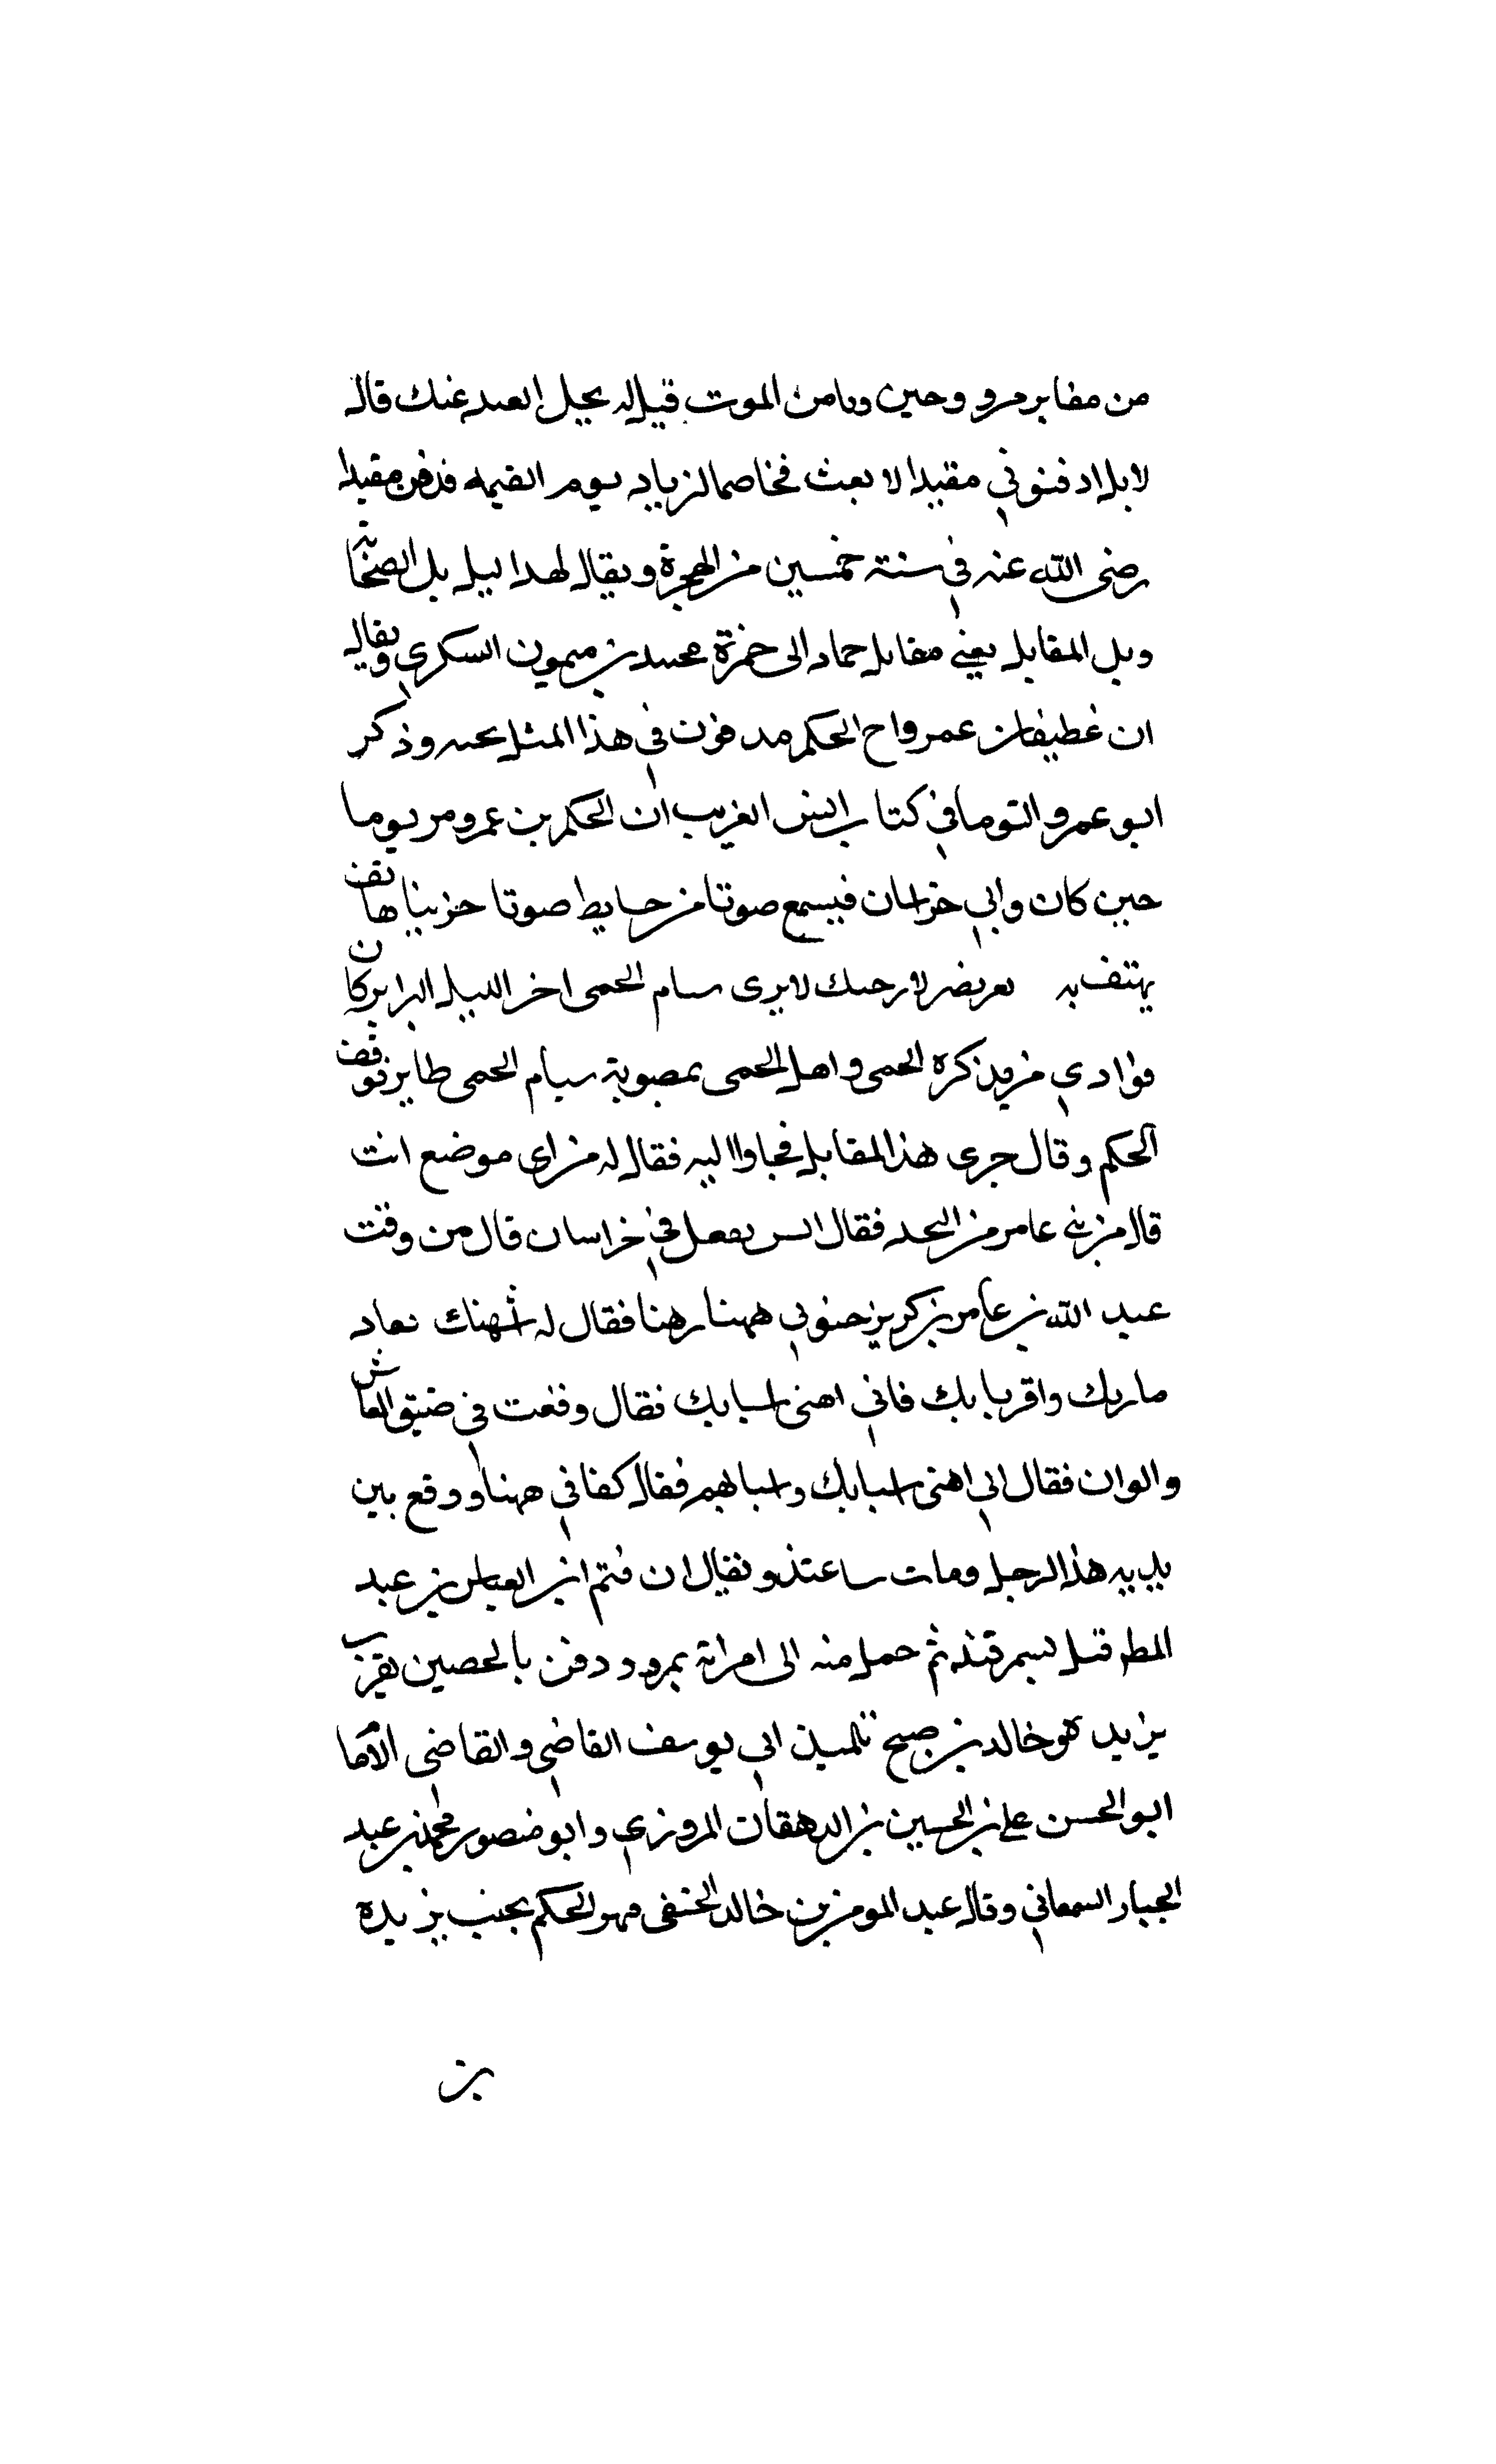 من مقابر مرو وحين دنا من الموت قيل له يحل القيد عنك قال
لا بل ادفنوني مقيدا لابعث مخاصما لزياد يوم القيمه فدفن مقيدا
رضى الله عنه في سنة خمسين من الهجرة ويقال لهذا ليل بل الصحابة
وبل المقابل يعني مقابل حماد الى حمزة محمد بن ميمون السكري ويقال
ان غطيفان عمرو اخ الحكم مدفون في هذا المثل وذكر
ابو عمرو النوما في كتاب انيس الغريب ان الحكم بن عمرو مر يوما
حين كان والي خراسان فيسمع صوتا من حايط صوتا حزينا هاتف
يهتف به لا يرى سام الحمى اخر الليل الزاير كان
فؤادي من يذكره الحمى واهل الحمى بمصوبة سيام الحمى طاير فوقف
الحكم وقال جرى هذا المقابل فجاوا اليه فقال له من اى موضع انت
قال من بني عامر من فقال في خراسان قال من وقت
عبد الله بن عامر بن كريز حبسوني ههنا رهنا فقال له
واقربايك فاني اهنى اسبابك فقال وقعت في ضيق المعاش
والوان فقال اني اهنى اسبابك واسبابهم فقال كفاني ههنا ووقع بين
يديه هذا الرجل ومات ساعتذ ويقال ان قثم ابن العباس بن عبد
المطلب قتل بسمرقند ثم حمل منه الى امراة بمرو ودفن بالحصين بقرب
يزيد هو خالد بن صبح تلميذ ابي يوسف القاضي والقاضي الامام
ابو الحسن علي بن الحسين بن الدهقان المروزي وابو منصور محمد بن عبد
الجبار السمعاني وقال عبد المومن بن خالد الحنفي مهر الحكم بجنب بريدة
بن